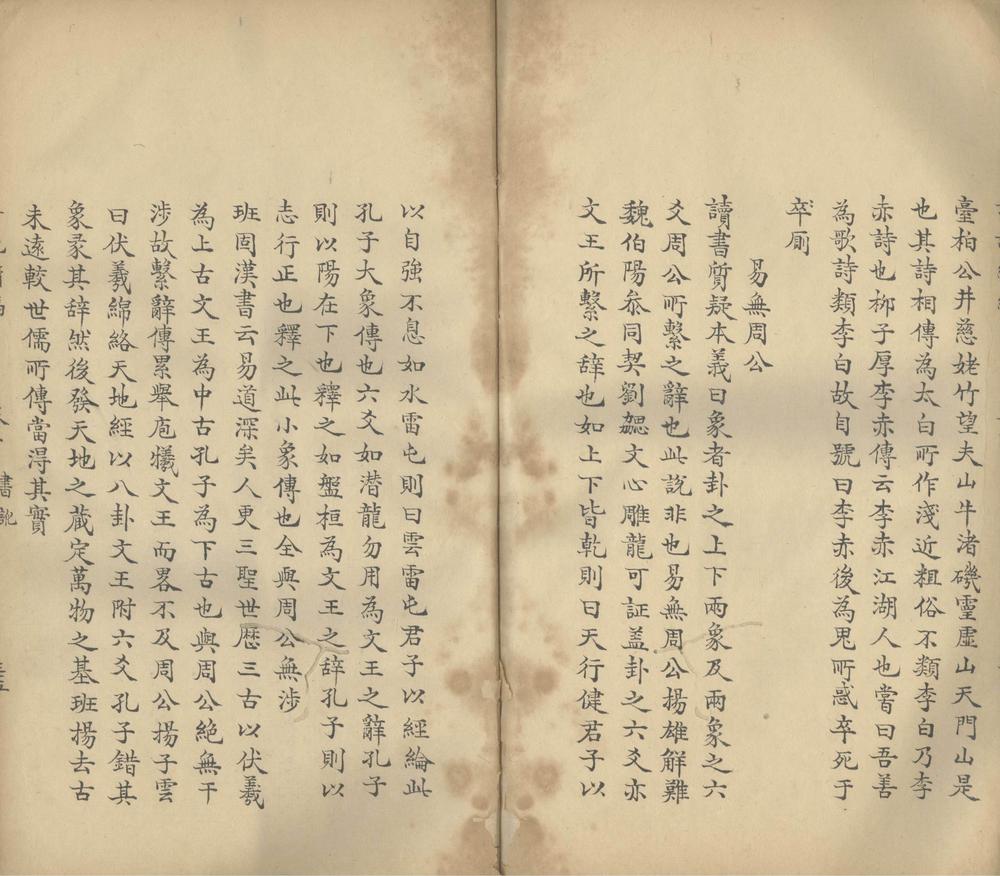 臺柏公井慈姥竹望夫山牛渚磯靈虛山天門山是
也其詩相傳為太白所作淺近粗俗不類李白乃李
赤詩也栁子厚李赤傳云李赤江湖人也嘗曰吾善
為歌詩類李白故自號曰李赤後為鬼所惑卒死于
厠
易無周公
讀書質疑本義曰象者卦之上下兩象及兩象之六
爻周公所繫之辭也此說非也易無周公揚雄解難
魏伯陽叅同契劉勰文心雕龍可証盖卦之六爻亦
文王所繫之辞也如上下皆乾則曰天行健君子以
以自強不息如水雷屯則曰雲雷屯君子以經綸此
孔子大象傳也六爻如潛龍勿用為文王之辭孔子
則以陽在下也釋之如盤桓為文王之辞孔子則以
志行正也釋之此小象傳也全與周公無涉
班固漢書云易道深矣人更三聖世歴三古以伏羲
為上古文王為中古孔子為下古也與周公絶無干
涉故繫辭傳累舉庖犧文王而畧不及周公揚子雲
曰伏羲綿絡天地經以八卦文王附六爻孔子錯其
象彖其辞然後發天地之蔵定萬物之基班揚去古
未遠較世儒所傳當淂其實